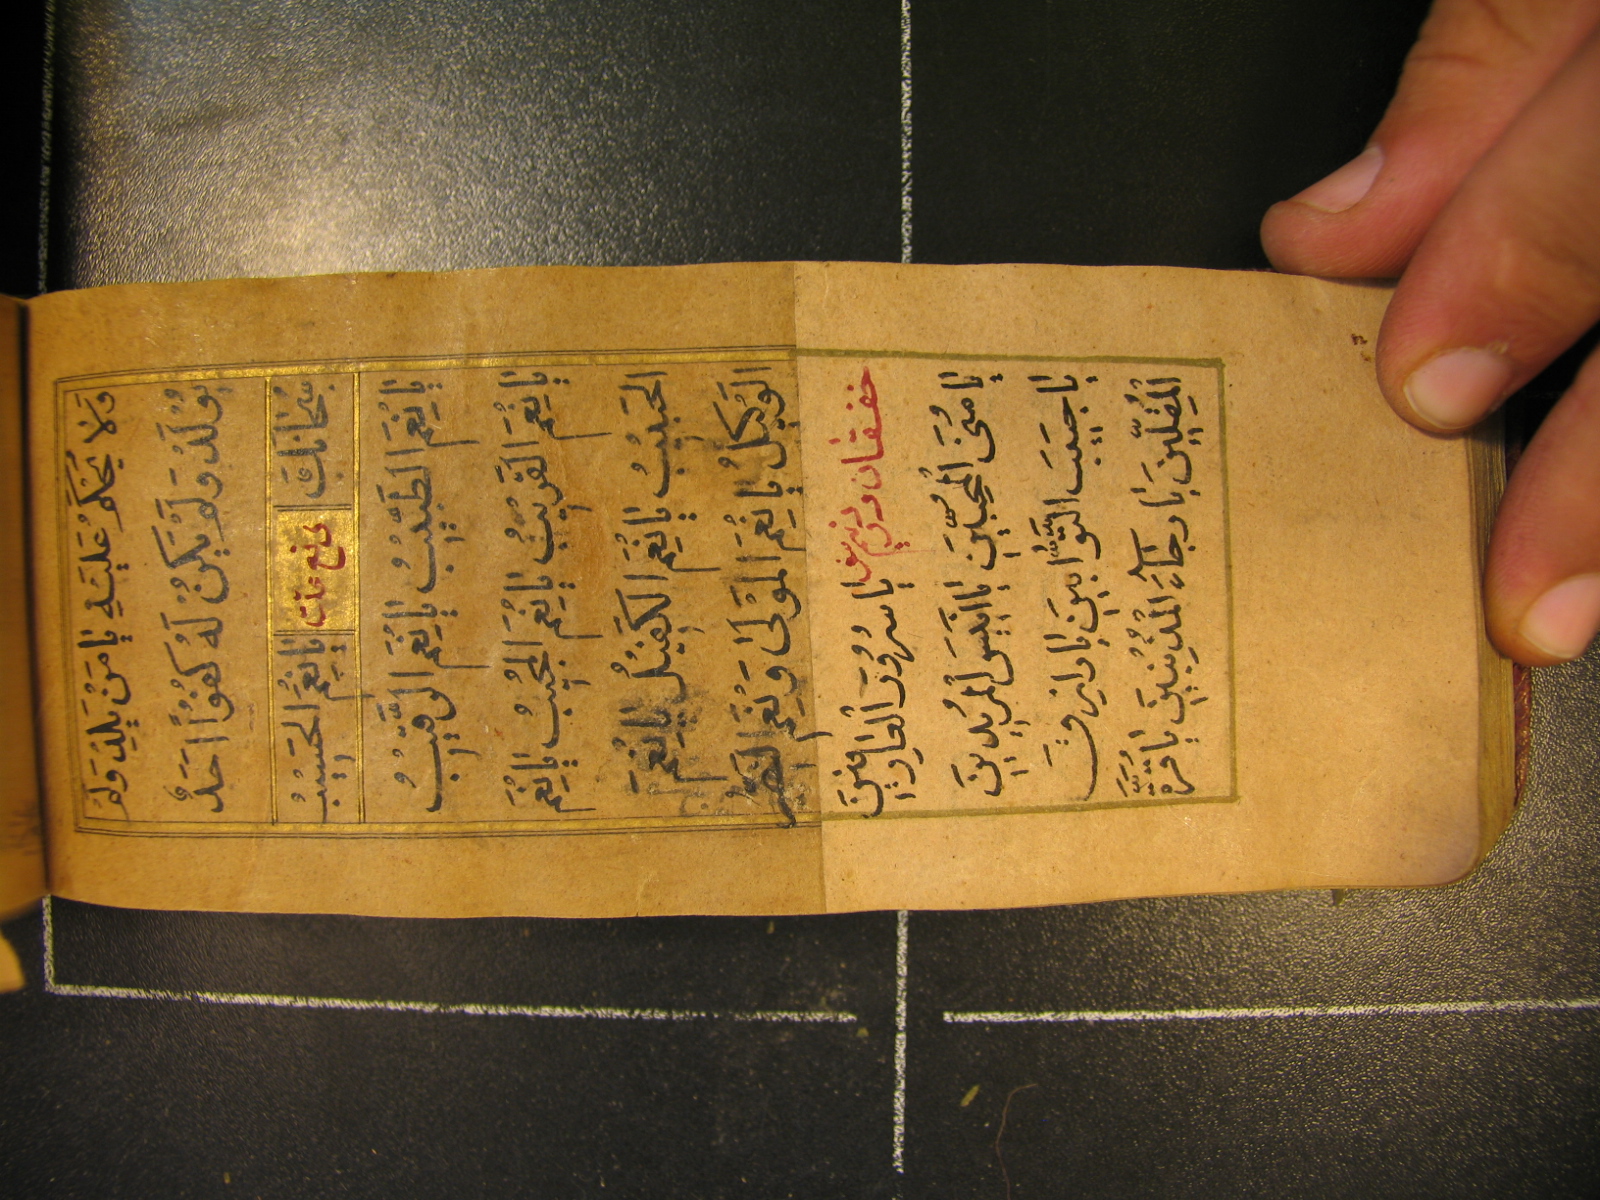 وَلَا يُحْكَمُ عَلَيْهِ يَا مَنْ لَمْ يَلِدْ وَلَمْ
يُولَدْ وَلَمْ يَكُنْ لَهُ كُفُوًا أَحَدٌ
سُبْحَانَكَ يَا نِعْمَ الْحَسِيبُ
يَا نِعْمَ الطَّبِيبُ يَا نِعْمَ الرَّقِيبُ
يَا نِعْمَ الْقَرِيبُ يَا نِعْمَ الْمُجِيبُ يَا نِعْمَ
الْحَبِيبُ يَا نِعْمَ الْكَفِيلُ يَا نِعْمَ
الْوَكِيلُ يَا نِعْمَ الْمَوْلَى وَنِعْمَ النَّصِيرُ
خفقان يَا سُرُورَ الْعَارِفِينَ
يَا مُنَى الْمُحِبِّينَ يَا أَنِيسَ الْمُرِيدِينَ
يَا حَبِيبَ التَّوَّابِينَ يَا رَازِقَ
الْمُقِلِّينَ يَا رَجَاءَ الْمُذْنِبِينَ يَا قُرَّةَ